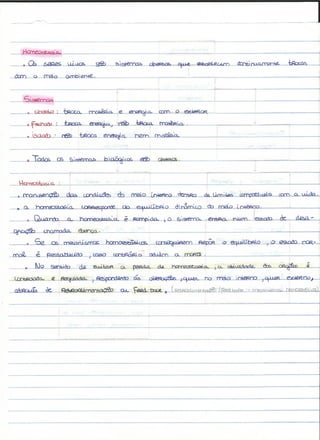 Homeostasia
• Os seres vivos são sistemas abertos que estabelecem continuamente trocas
com o meio ambiente.
Sistemas
• aberto: troca matéria e energia com o exterior
• Fechado: troca energia, não troca matéria
• isolado: não troca energia nem matéria
• Todos os sistemas biológicos são abertos.
Homeostasia:
• manutenção das condições do meio interno dentro de limites compatíveis com a vida.
• a homeostasia corresponde ao equilíbrio dinâmico do meio interno.
• Quando a homeostasia é rompida, o sistema entra num estado de desa-
gregação chamada doença.
• Se os mecanismos homeostáticos conseguirem repôr o equilíbrio, o estado nor-
mal é restabelecido, caso contrário advém a morte.
• No sentido de evitar a perda de homeostasia, a atividade dos órgãos é
controlada e regulada, respondendo às alterações, quer no meio interno, quer externo,
através de Retroalimentação ou Feed back.